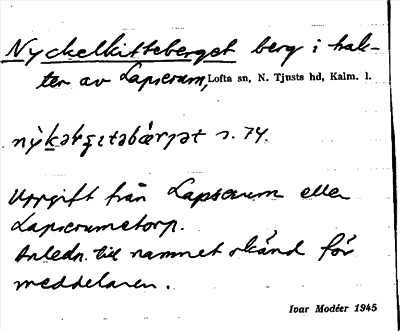 Nyckelkitteberget berg i trak-
ten av Lapserum, Lofta sn, N. Tjusts hd, Kalm. l.
s. 74.
Uppgift från Lapserum eller
Lapserumstorp.
Anledn. till namnet okänd för
meddelaren.
Ivar Modéer 1945